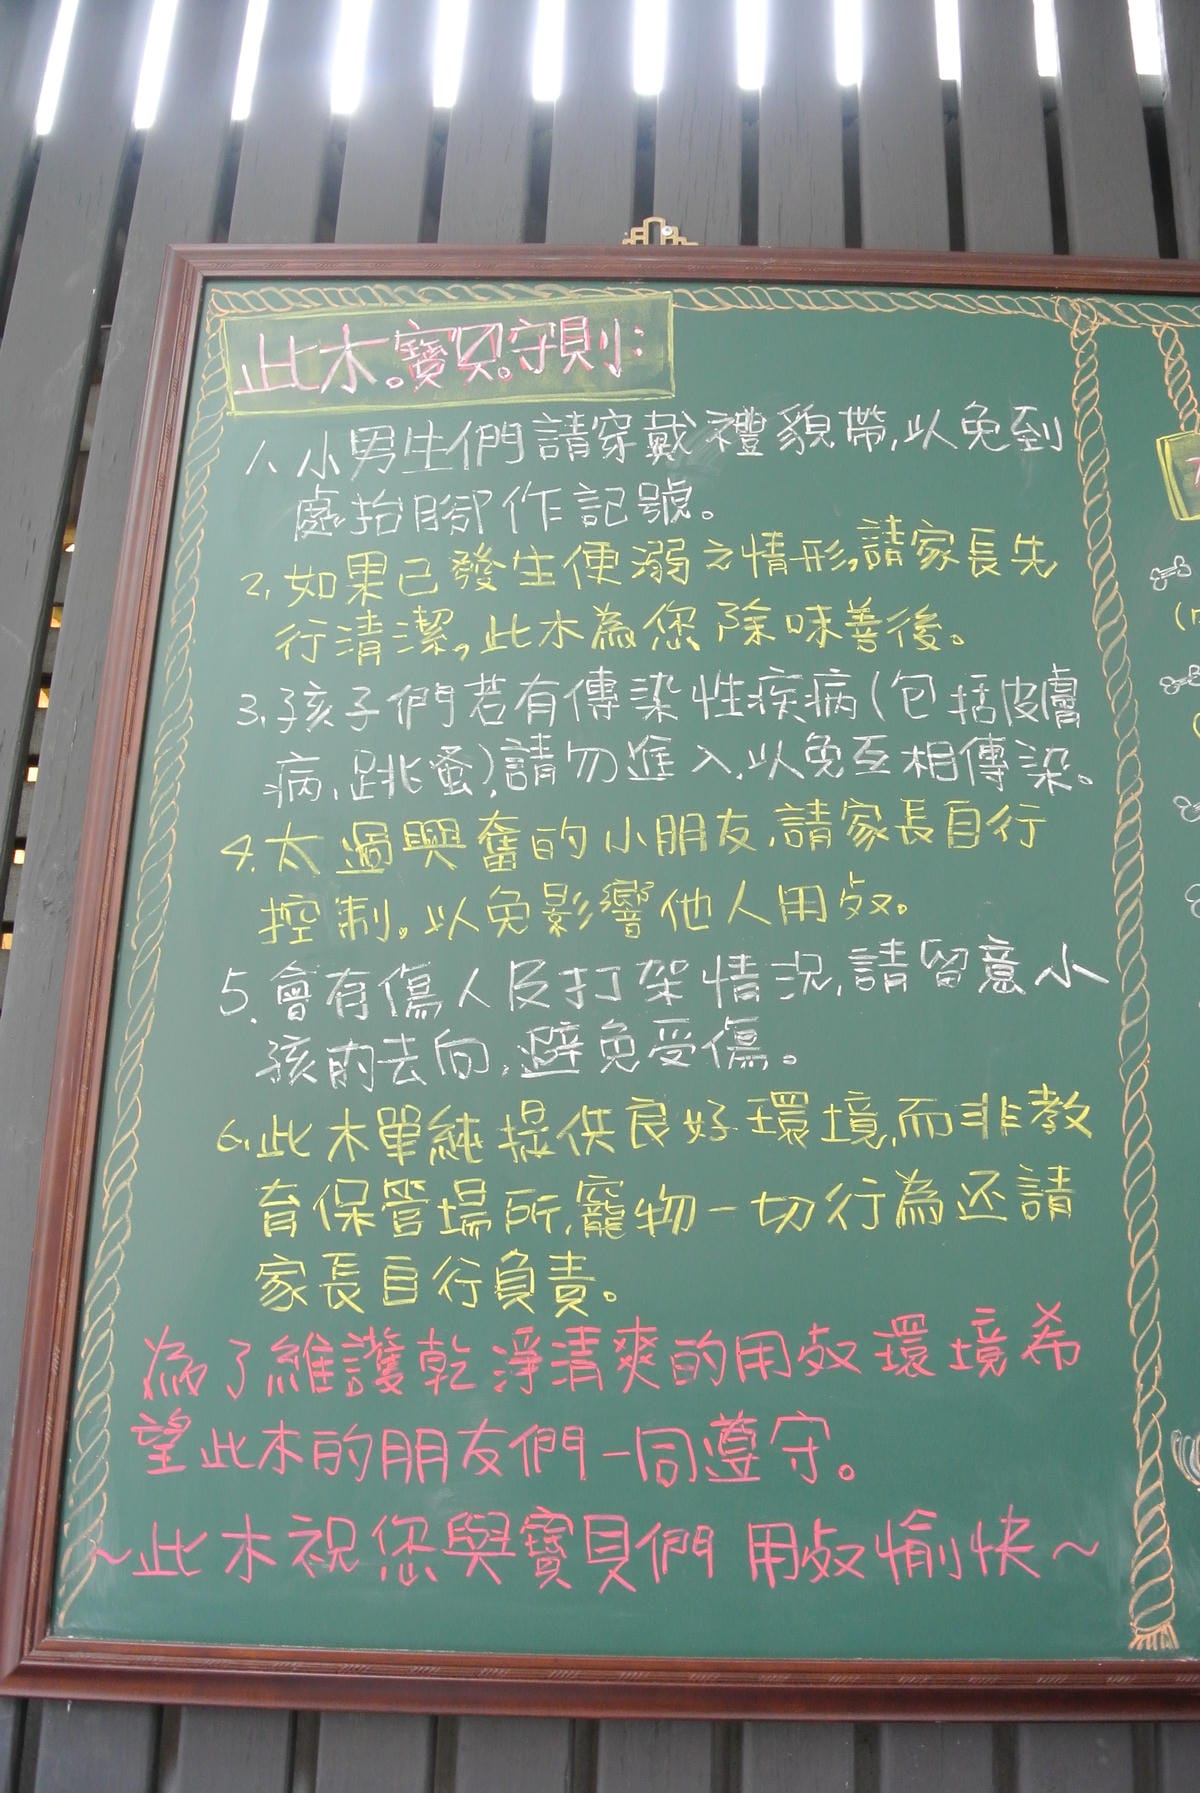 此木。寶貝。守則:
1. 小男生們請穿戴禮貌帶,以免到
處抬腳作記號。
2. 如果已發生便溺之情形,請家長先
行清潔,此木為您除味善後。
3. 孩子們若有傳染性疾病(包括皮膚
病、跳蚤),請勿進入,以免互相傳染。
4. 太過興奮的小朋友,請家長自行
控制。以免影響他人用餐。
5. 會有傷人及打架情況,請留意小
孩的去向,避免受傷。
6. 此木單純提供良好環境,而非教
育保管場所,寵物一切行為还請
家長自行負責。
為了維護乾淨清爽的用餐環境希
望此木的朋友們一同遵守。
~此木祝您與寶貝們 用餐愉快~